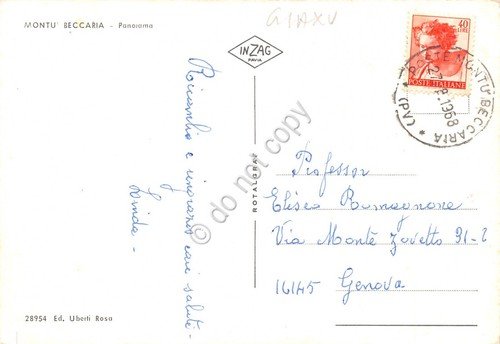 MONTU' BECCARIA - Panorama
G1AXV
INZAG
PAVIA
40
POSTE ITALIANE
MONTU' BECCARIA
1968
(PV)
Ricambio e ringrazio cari saluti -
Linda -
ROTALGRAF
do not copy
Professor
Elisea Romagnone
Via Monte Zovetto 31-2
16145
Genova
28954 Ed. Uberti Rosa